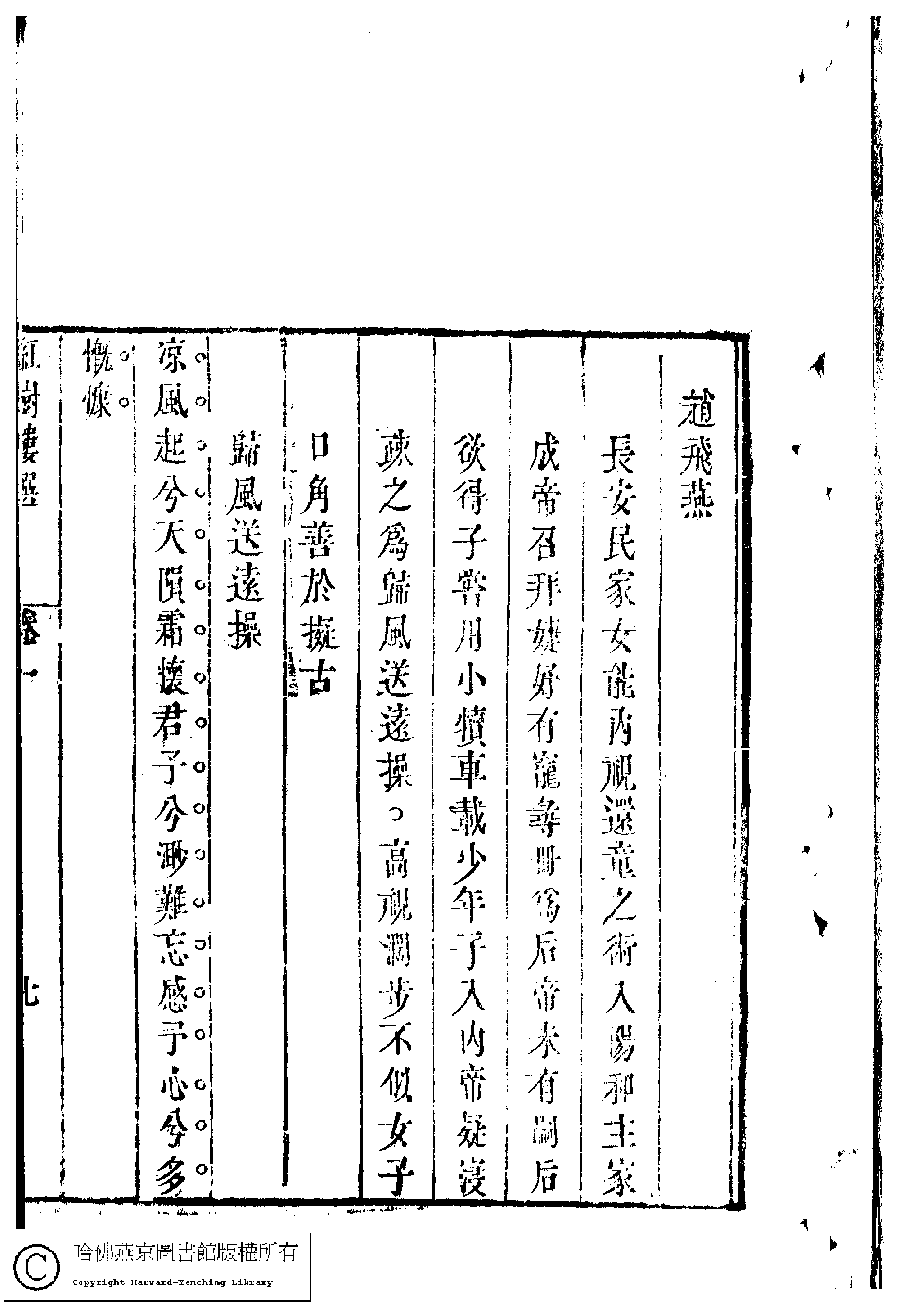 趙飛燕
長安民家女能內視還童之術入陽和主家
成帝召拜婕妤有寵尋冊爲后帝未有嗣后
欲得子嘗用小犢車載少年子入內帝疑寖
疎之爲歸風送遠操。高視濶步不似女子
口角善於擬古
歸風送遠操
凉風起兮天隕霜懷君子兮渺難忘感予心兮多
慨慷
紅樹樓選
卷一
七
哈佛燕京圖書館版權所有
Copyright Harvard-Yenching Library